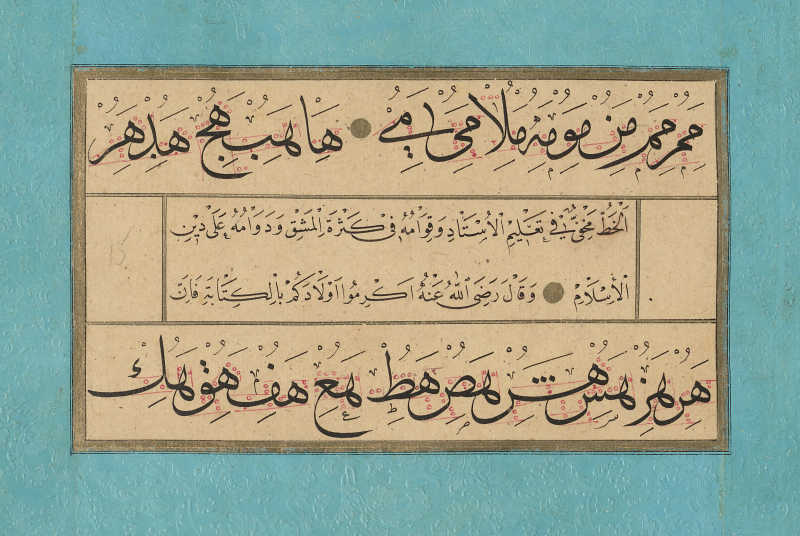 من مو مه ملا مى مے ها هب هج هد هر
اَلْخَطُّ مَخْفِيٌّ فِي تَعْلِيمِ الْأُسْتَادِ وَقِوَامُهُ فِي كَثْرَةِ الْمَشْقِ وَدَوَامُهُ عَلَى دِينِ
الْإِسْلَامِ وَقَالَ رَضِيَ اللهُ عَنْهُ اَكْرِمُوا اَوْلَادَكُمْ بِالْكِتَابَةِ فَاِنَّ
هر هز هس هش هص هط هع هف هق هك